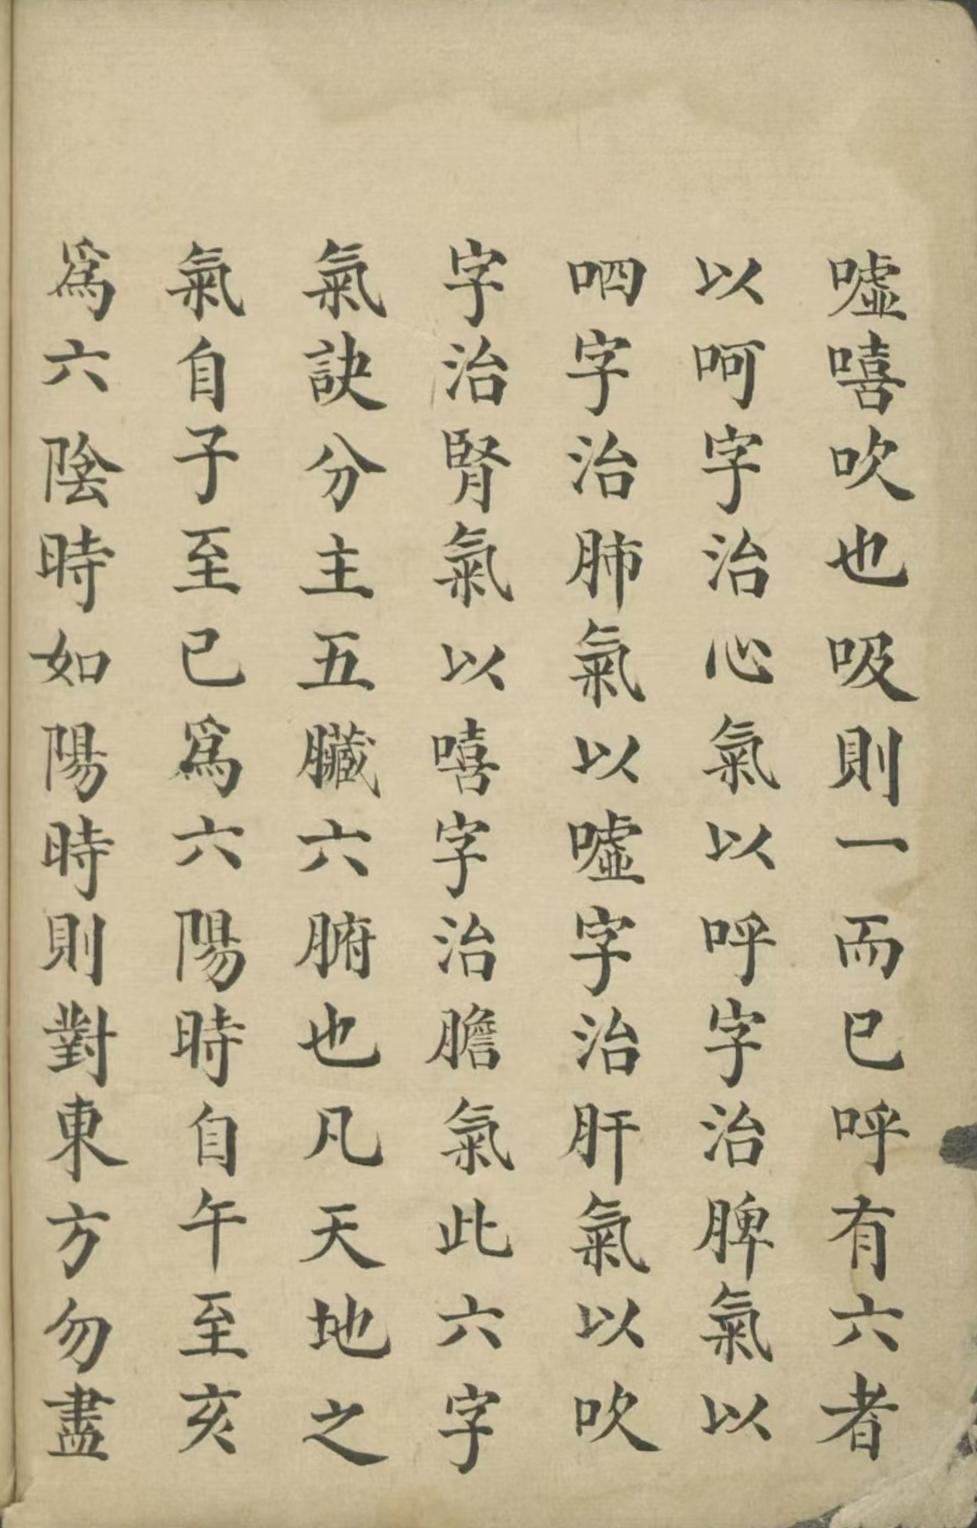 噓嘻吹也吸則一而已呼有六者
以呵字治心氣以呼字治脾氣以
呬字治肺氣以噓字治肝氣以吹
字治腎氣以嘻字治膽氣此六字
氣訣分主五臟六腑也凡天地之
氣自子至巳爲六陽時自午至亥
爲六陰時如陽時則對東方勿盡